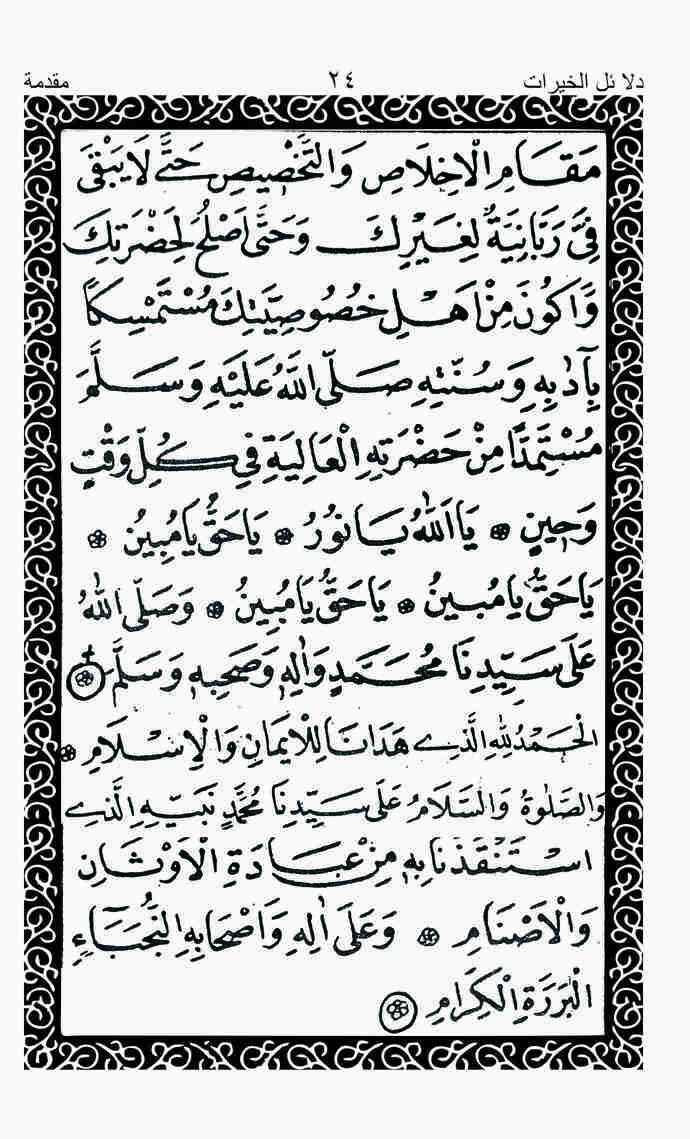 دلائل الخيرات ٢٤ مقدمة
مَقَامِ الْاِخْلَاصِ وَالتَّخْصِيصِ حَتَّى لَا يَبْقَى
فِيَّ رَبَّانِيَةٌ لِغَيْرِكَ وَحَتَّى اَصْلُحَ لِحَضْرَتِكَ
وَاَكُونَ مِنْ اَهْلِ خُصُوصِيَّتِكَ مُسْتَمْسِكًا
بِآدَابِهِ وَسُنَّتِهِ صَلَّى اللّٰهُ عَلَيْهِ وَسَلَّمَ
مُسْتَمِدًّا مِنْ حَضْرَتِهِ الْعَالِيَةِ فِي كُلِّ وَقْتٍ
وَحِينٍ ۞ يَا اَللّٰهُ يَا نُورُ ۞ يَا حَقُّ يَا مُبِينُ ۞
يَا حَقُّ يَا مُبِينُ ۞ يَا حَقُّ يَا مُبِينُ ۞ وَصَلَّى اللّٰهُ
عَلَى سَيِّدِنَا مُحَمَّدٍ وَاٰلِهِ وَصَحْبِهِ وَسَلَّمَ ۞
اَلْحَمْدُ لِلّٰهِ الَّذِي هَدَانَا لِلْاِيمَانِ وَالْاِسْلَامِ ۞
وَالصَّلٰوةُ وَالسَّلَامُ عَلَى سَيِّدِنَا مُحَمَّدٍ نَبِيِّهِ الَّذِي
اسْتَنْقَذَنَا بِهِ مِنْ عِبَادَةِ الْاَوْثَانِ
وَالْاَصْنَامِ ۞ وَعَلَى اٰلِهِ وَاَصْحَابِهِ النُّجَبَاءِ
الْبَرَرَةِ الْكِرَامِ ۞